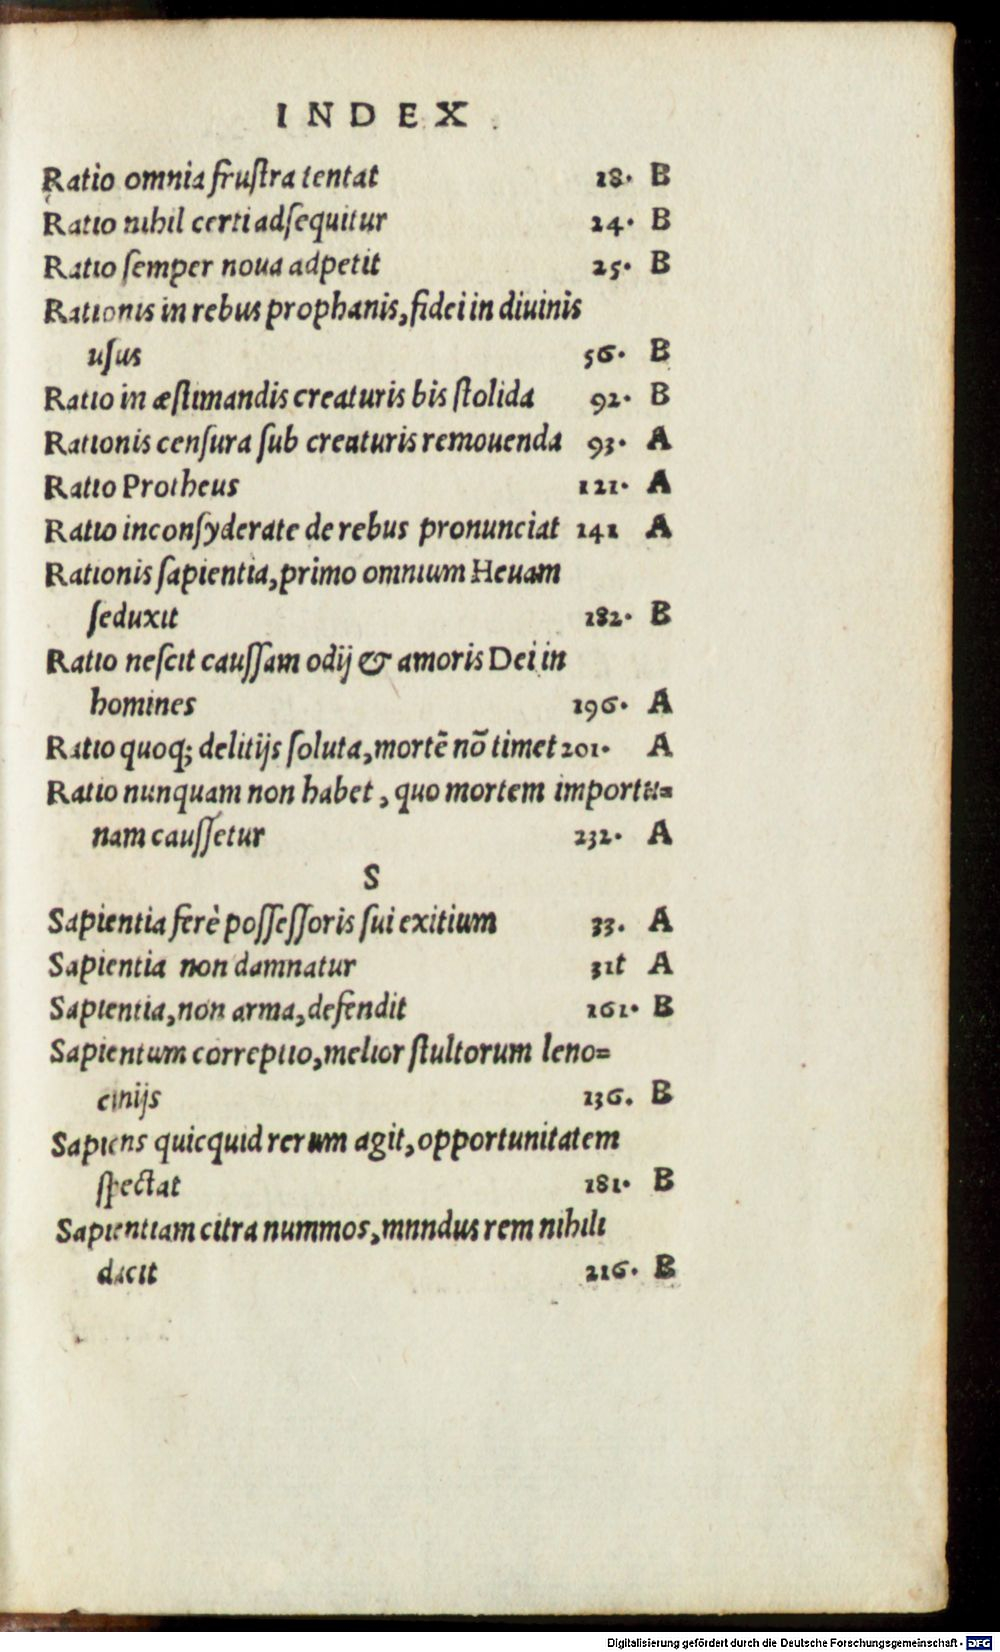 INDEX.
Ratio omnia fruſtra tentat 18. B
Ratio nihil certi adſequitur 24. B
Ratio ſemper noua adpetit 25. B
Rationis in rebus prophanis, fidei in diuinis
uſus 56. B
Ratio in æſtimandis creaturis bis ſtolida 92. B
Rationis cenſura ſub creaturis remouenda 93. A
Ratio Protheus 121. A
Ratio inconſyderate de rebus pronunciat 141 A
Rationis ſapientia, primo omnium Heuam
ſeduxit 182. B
Ratio neſcit cauſſam odij & amoris Dei in
homines 196. A
Ratio quoq; delitijs ſoluta, mortē nō timet 201. A
Ratio nunquam non habet, quo mortem importu=
nam cauſſetur 232. A
S
Sapientia ferè poſſeſſoris ſui exitium 33. A
Sapientia non damnatur 31t A
Sapientia, non arma, defendit 161. B
Sapientum correptio, melior ſtultorum leno=
cinijs 136. B
Sapiens quicquid rerum agit, opportunitatem
ſpectat 181. B
Sapientiam citra nummos, mnndus rem nihili
ducit 216. B
Digitalisierung gefördert durch die Deutsche Forschungsgemeinschaft - DFG